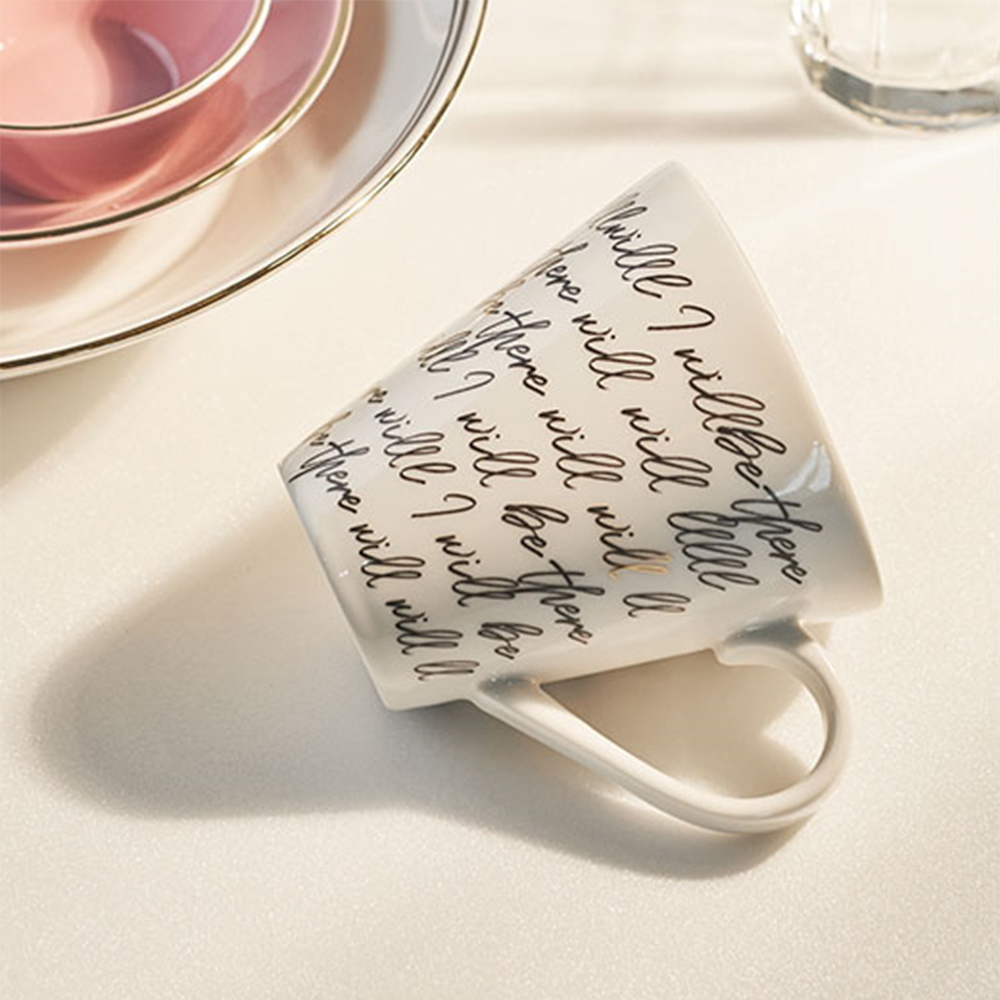 willl I willbe there
here will will
there will will ll
ll I will be there
willl I will be
there will will ll